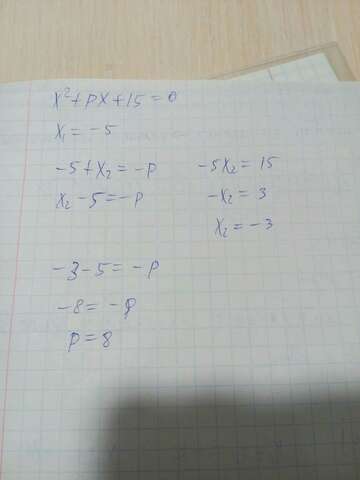 x²+px+15=0
x₁=-5
-5+x₂=-p
-5x₂=15
x₂-5=-p
-x₂=3
x₂=-3
-3-5=-p
-8=-p
p=8